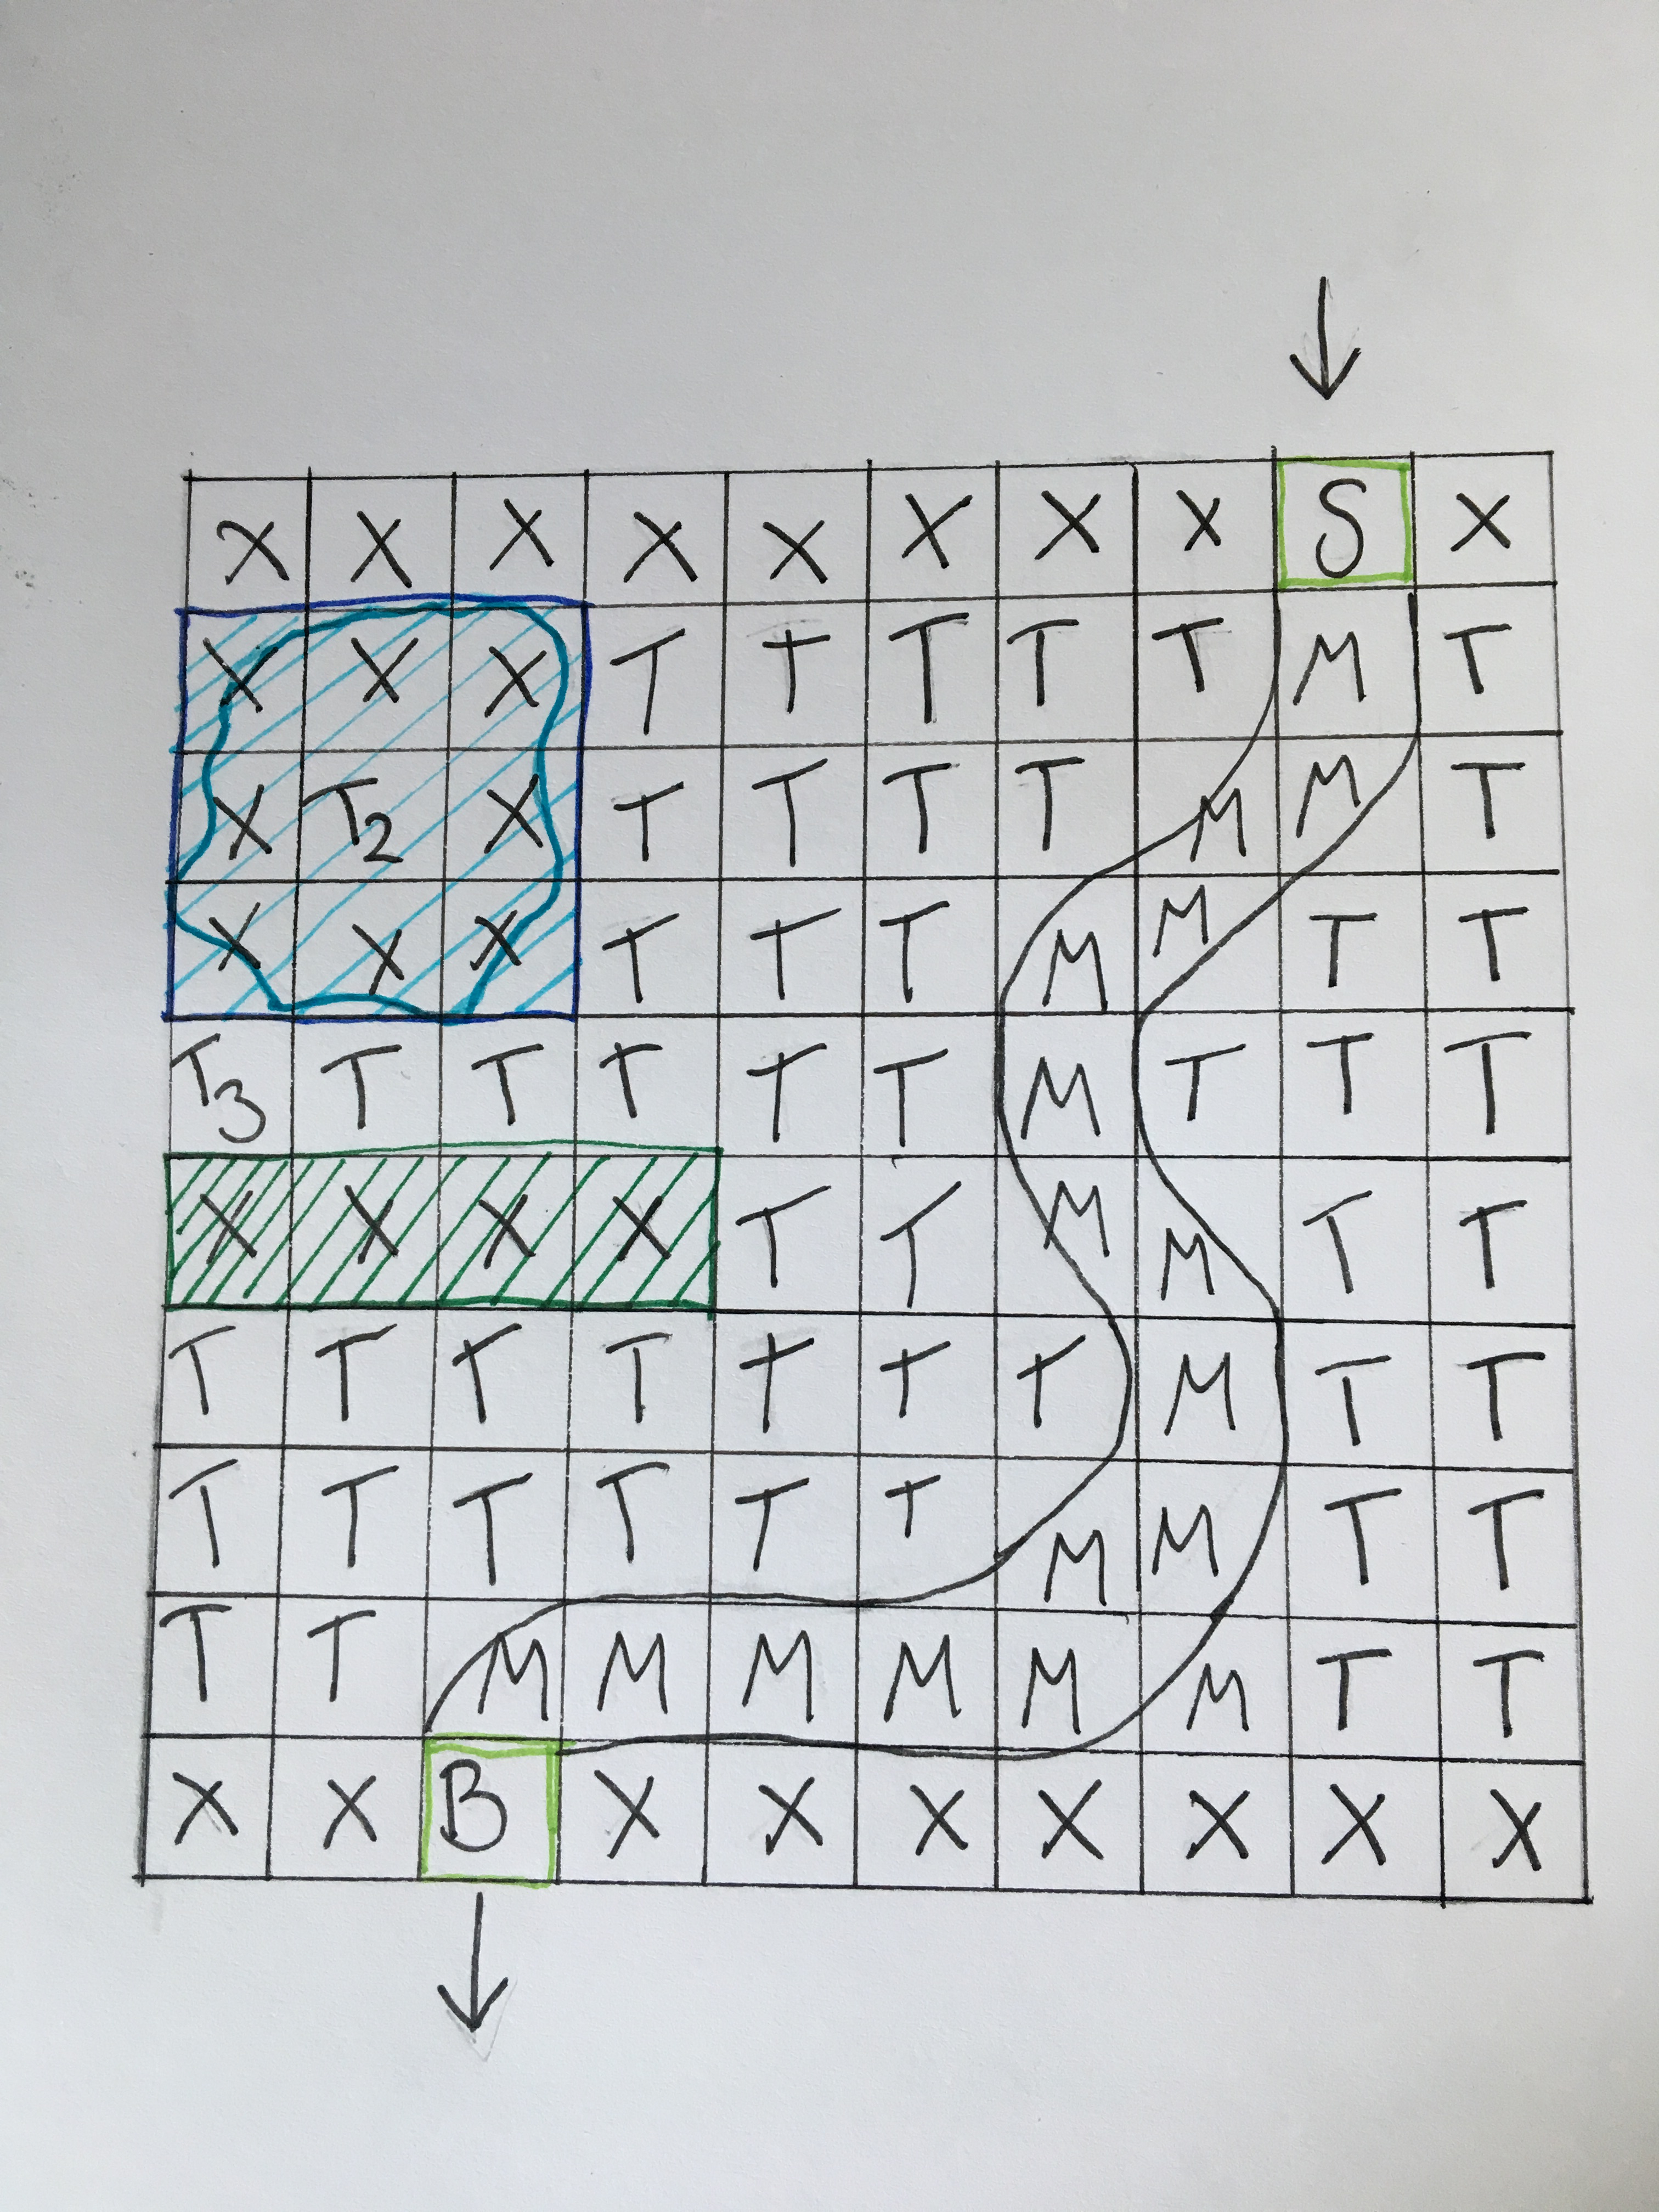 X X X X X X X X S X
X X X T T T T T M T
X T2 X T T T T M M T
X X X T T T M M T T
T3 T T T T T M T T T
X X X X T T M M T T
T T T T T T T M T T
T T T T T T M M T T
T T M M M M M M T T
X X B X X X X X X X